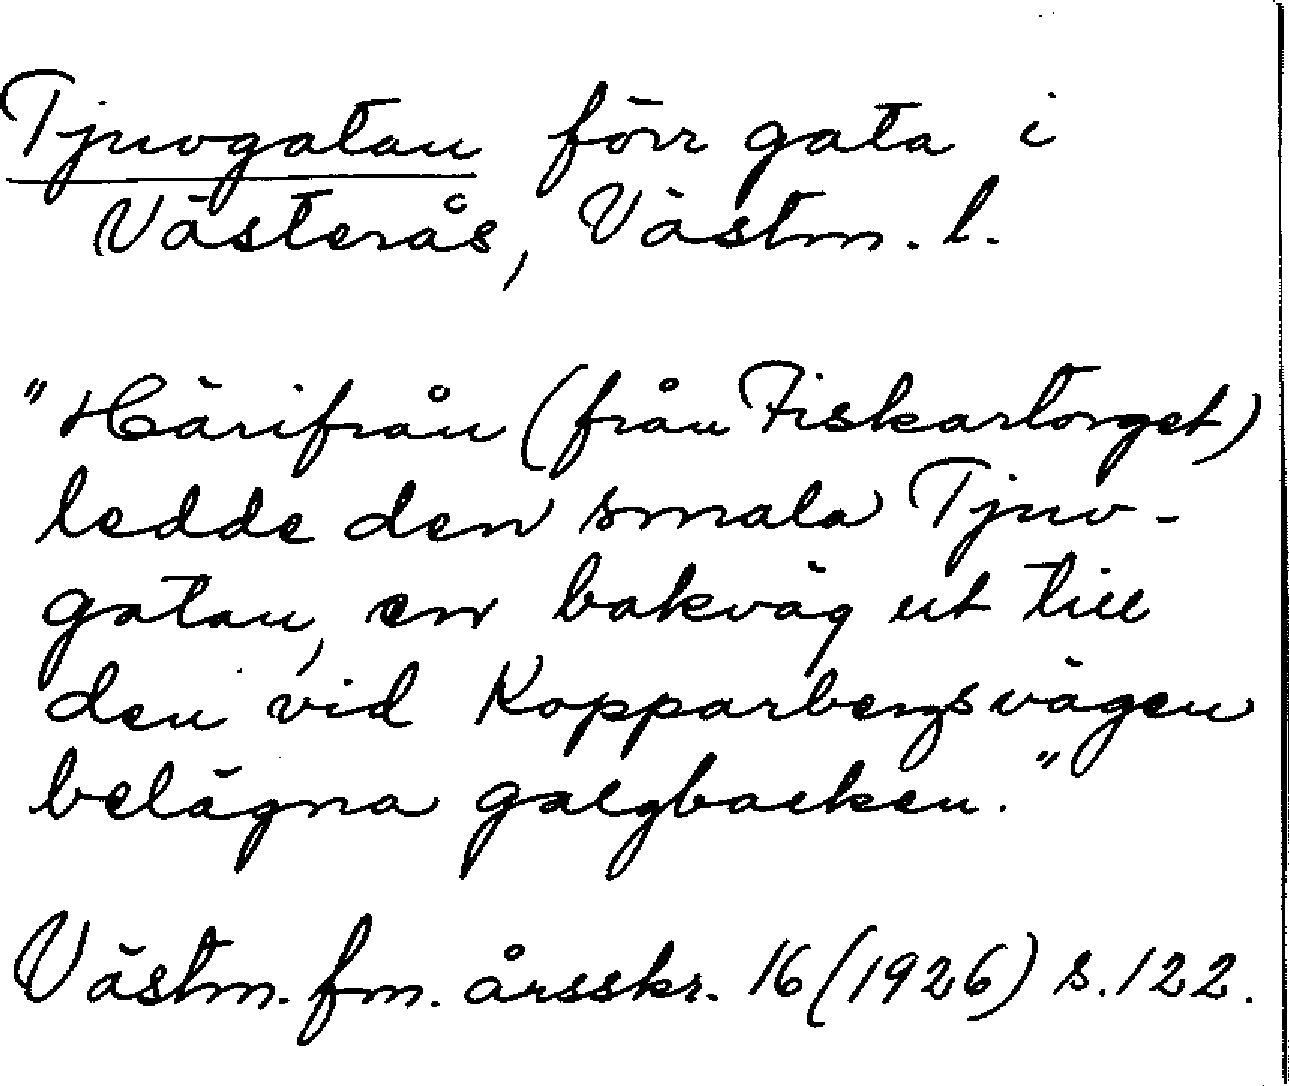 Tjuvgatan förr gata i
Västerås, Västm. l.
"Härifrån (från Fiskartorget)
ledde den smala Tjuv-
gatan, en bakväg ut till
den vid Kopparbergsvägen
belägna galgbacken."
Västm. fm. årsskr. 16 (1926) s. 122.